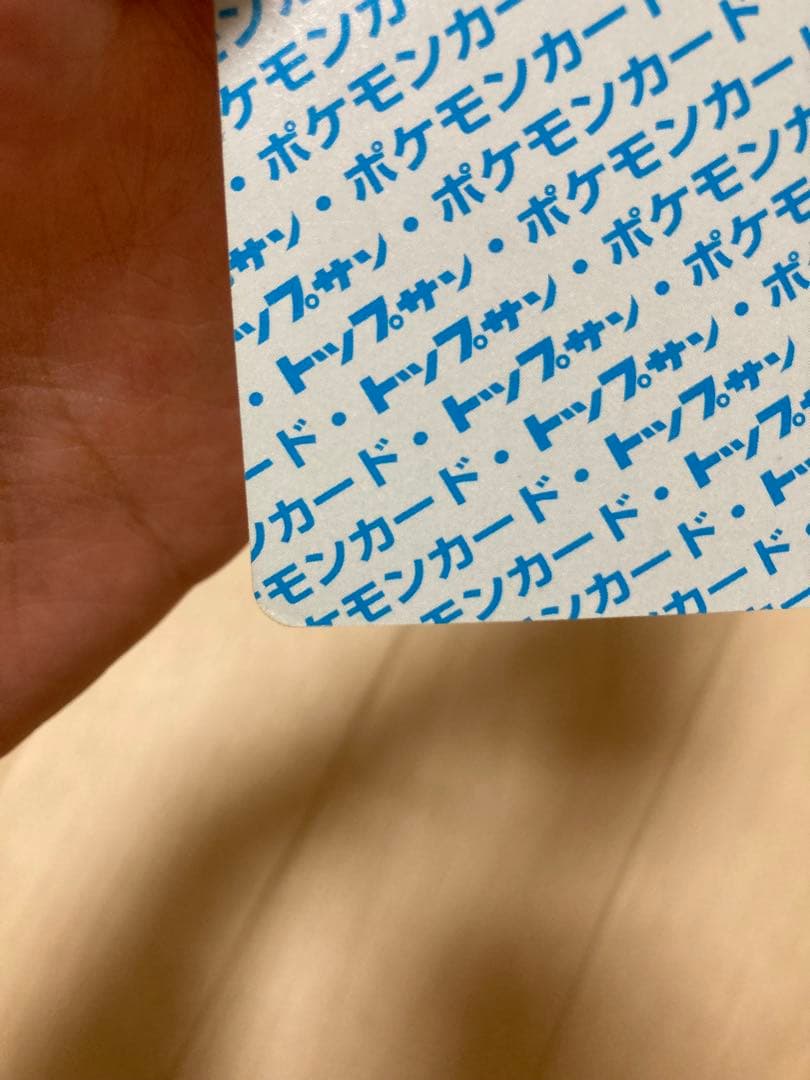 ンカ
ケモンカ
・ポケモンカー
サン・ポケモンカード
ップサン・ポケモンカード
・トップサン・ポケモンカード
ード・トップサン・ポケモンカ
ンカード・トップサン・ポケモ
モンカード・トップサン・ポ
ケモンカード・トップサン
モンカード・トップサ
ンカード・トッ
カード・